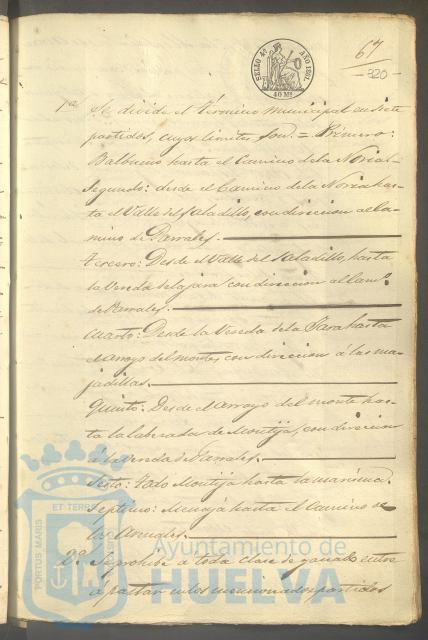 SELLO 4º AÑO 1861.
40 Ms
67
-320-
1ª Se divide el Término Municipal en siete
partidos, cuyos limites son. = Primero:
hasta el Camino de la Noria =
Segundo: desde el Camino de la Noria has-
ta el Valle del Saladillo, con direccion al Ca-
mino de Parrales.
Tercero: Desde el Valle del Saladillo, hasta
la con direccion al Camº
de Parrales.
Cuarto: Desde la Vereda de la hasta
el arroyo del monte, con direccion á las ma-
jadillas.
Quinto: Desde el arroyo del monte has-
ta la de Montija, con direccion
á la de Parrales.
Sesto: todo Montija hasta la marisma.
Septimo: hasta el Camino de
los
2º Se prohibe a toda clase de ganado entre
á pastar en los mencionados partidos
PORTUS MARIS ET TERRE
Ayuntamiento de
HUELVA